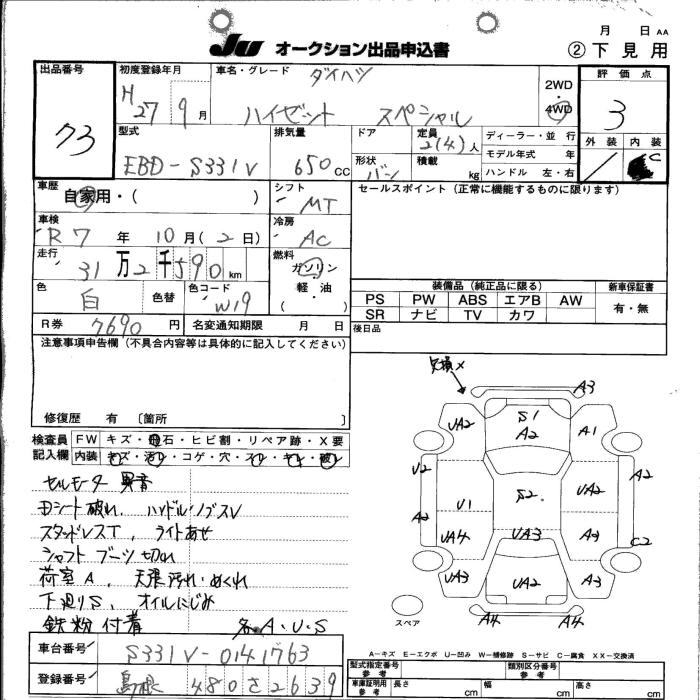 月 日 AA
JU オークション出品申込書 ②下見用
出品番号 73
初度登録年月 H27 9月
車名・グレード ダイハツ ハイゼット スペシャル
2WD・4WD
評価点 3
外装 内装 C
型式 EBD-S331V
排気量 650cc
ドア
形状 バン
定員 2(4)人
積載 kg
ディーラー・並行
モデル年式 年
ハンドル 左・右
車歴 自家用・( )
シフト MT
セールスポイント(正常に機能するものに限ります)
車検 R7年10月(2日)
冷房 AC
走行 31万2千590km
燃料 ガソリン・軽油 ( )
色 白 色替
色コード W19
装備品(純正品に限る) 新車保証書
PS PW ABS エアB AW 有・無
SR ナビ TV カワ
R券 7690円 名変通知期限 月 日
後日品
注意事項申告欄(不具合内容等は具体的に記入してください)
修復歴 有 〔箇所 〕
検査員記入欄
FW キズ・飛石・ヒビ割・リペア跡・X要
内装 キズ・汚レ・コゲ・穴・スレ・キレ・破レ
セルモーター異音
Dシート破れ、ハンドル・ノブスレ
スタッドレスT、ライトあせ
シャフトブーツ切れ
荷室A、天張汚れ・めくれ
下廻りS、オイルにじみ
鉄粉付着 各A・U・S
欠損×
A3
UA2 S1 A2 A1
U2 A2
U1 S2 UA2
A2 UA4 UA3 A2 C2
UA3 UA2 A3
A4 A4
スペア
A-キズ E-エクボ U-凹み W-補修跡 S-サビ C-腐食 XX-交換済
車台番号 S331V-0141763
登録番号 島根 480さ2639
型式指定番号 参考 類別区分番号 参考
車庫証明用 参考 長さ cm 幅 cm 高さ cm